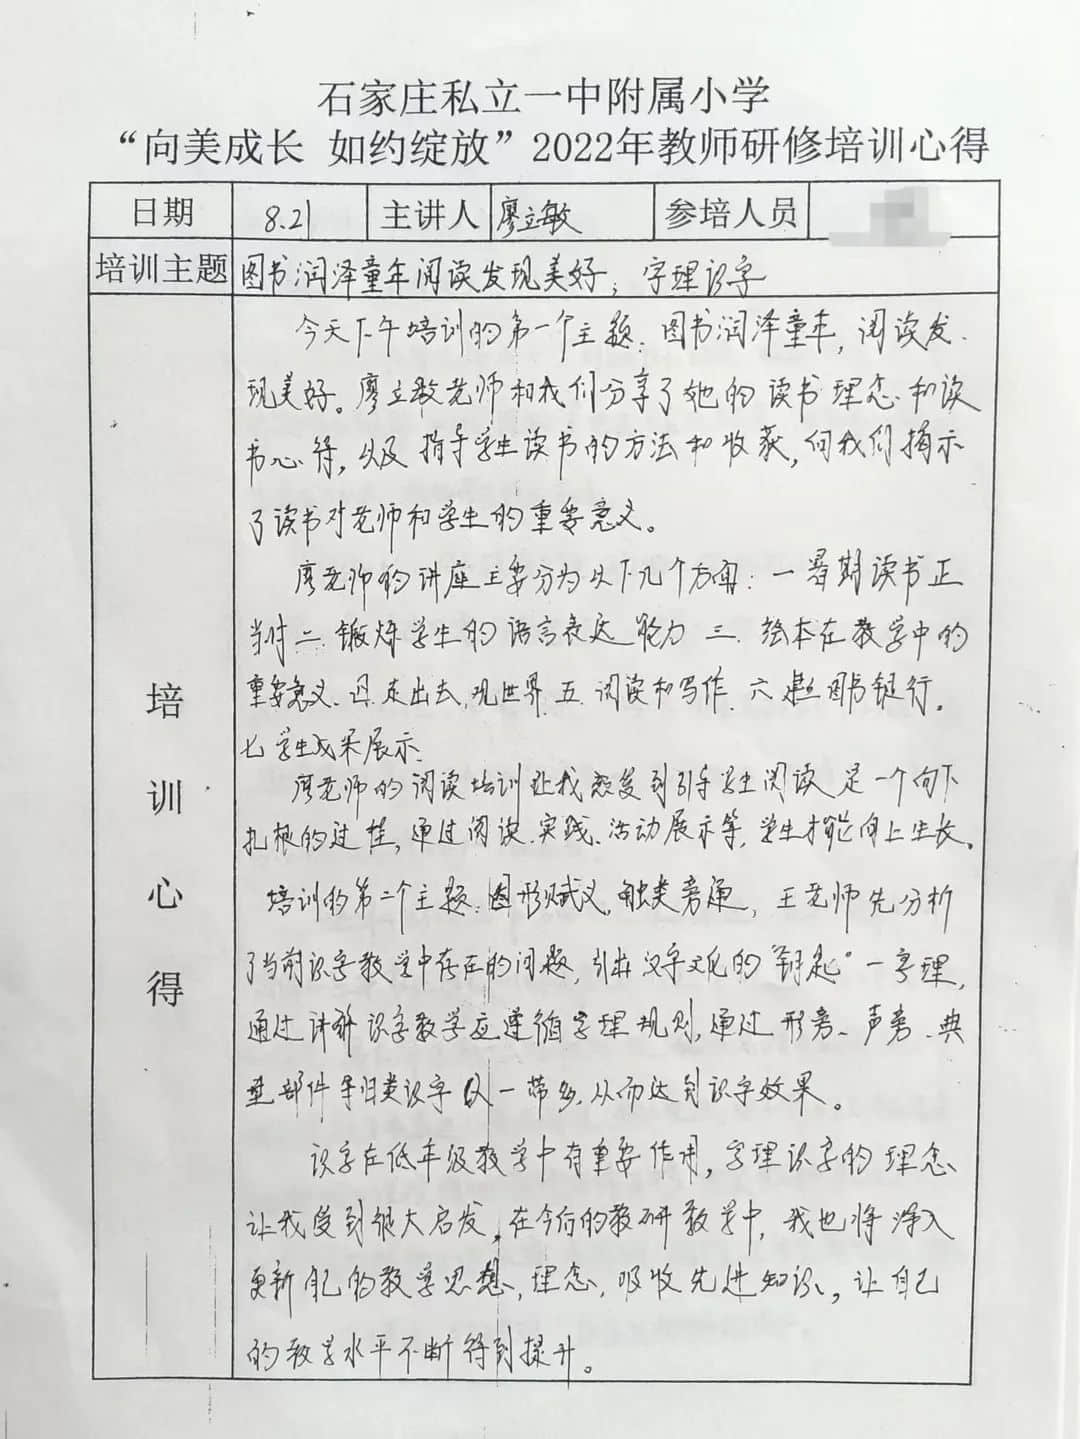 石家庄私立一中附属小学
“向美成长 如约绽放”2022年教师研修培训心得
日期 8.21 主讲人 廖立敏 参培人员
培训主题 图书润泽童年阅读发现美好；字理识字
培训心得
今天下午培训的第一个主题：图书润泽童年，阅读发
现美好。廖立敏老师和我们分享了她的读书理念和读
书心得，以及指导学生读书的方法和收获，向我们揭示
了读书对老师和学生的重要意义。
廖老师的讲座主要分为以下几个方面：一 暑期读书正
当时 二 锻炼学生的语言表达能力 三、绘本在教学中的
重要意义、四、走出去，观世界、五、阅读和写作、六 图书银行。
七 学生成果展示、
廖老师的阅读培训让我感受到引导学生阅读是一个向下
扎根的过程，通过阅读、实践、活动展示等，学生才能向上生长。
培训的第二个主题：图形赋义，触类旁通，王老师先分析
了当前识字教学中存在的问题，引出汉字文化的“钥匙”一字理，
通过讲解识字教学应遵循字理规则，通过形旁、声旁、典
型部件等归类识字 以一带多，从而达到识字效果。
识字在低年级教学中有重要作用，字理识字的理念
让我受到很大启发，在今后的教研教学中，我也将深入
更新自己的教学思想、理念，吸收先进知识，让自己
的教学水平不断得到提升。